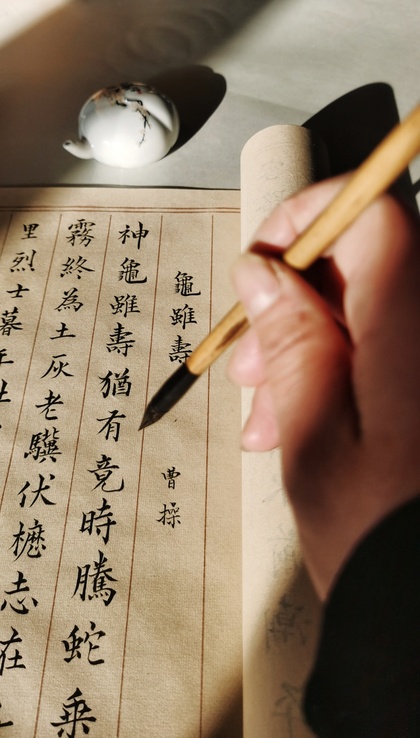 龜雖壽 曹操
神龜雖壽猶有竟時騰蛇乘
霧終為土灰老驥伏櫪志在
里烈士暮